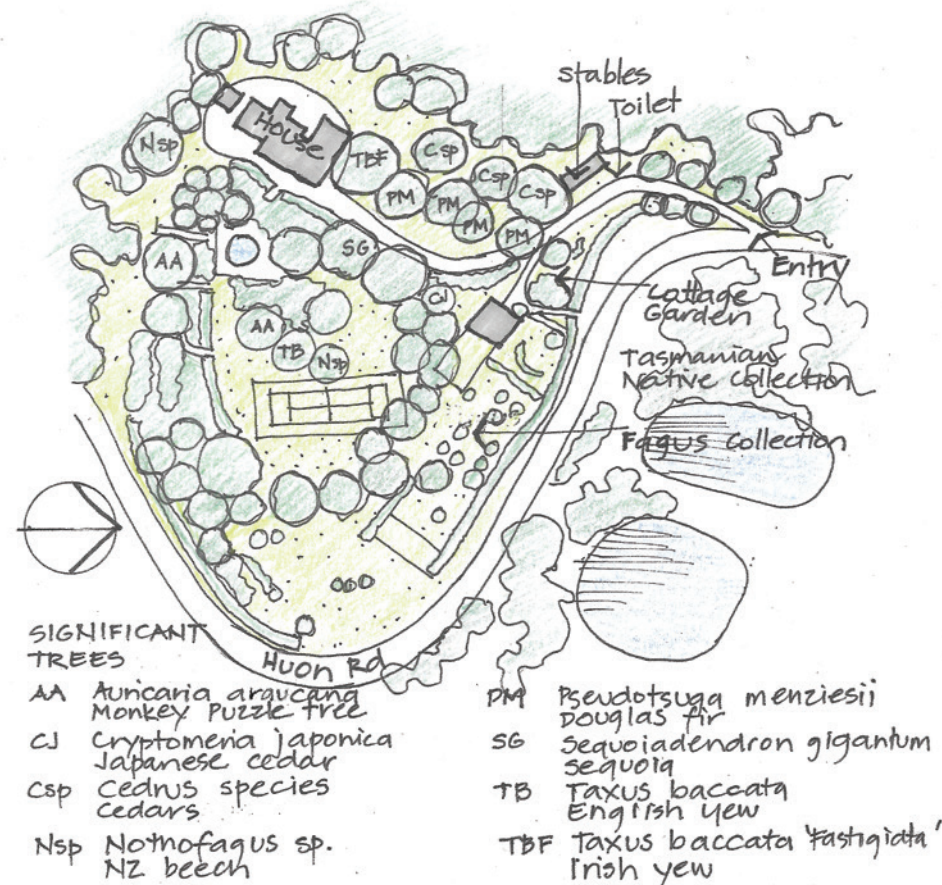 stables
Toilet
House
Nsp
TBF
Csp
Csp
Csp
PM
PM
PM
PM
AA
SG
CJ
AA
TB
Nsp
Entry
Cottage
Garden
Tasmanian
Native Collection
Fagus Collection
Huon Rd
SIGNIFICANT
TREES
AA Auricaria araucana
Monkey Puzzle tree
CJ Cryptomeria japonica
Japanese cedar
Csp Cedrus species
cedars
Nsp Nothofagus sp.
NZ beech
PM Pseudotsuga menziesii
Douglas fir
SG Sequoiadendron gigantum
sequoia
TB Taxus baccata
English yew
TBF Taxus baccata 'Fastigiata'
Irish yew